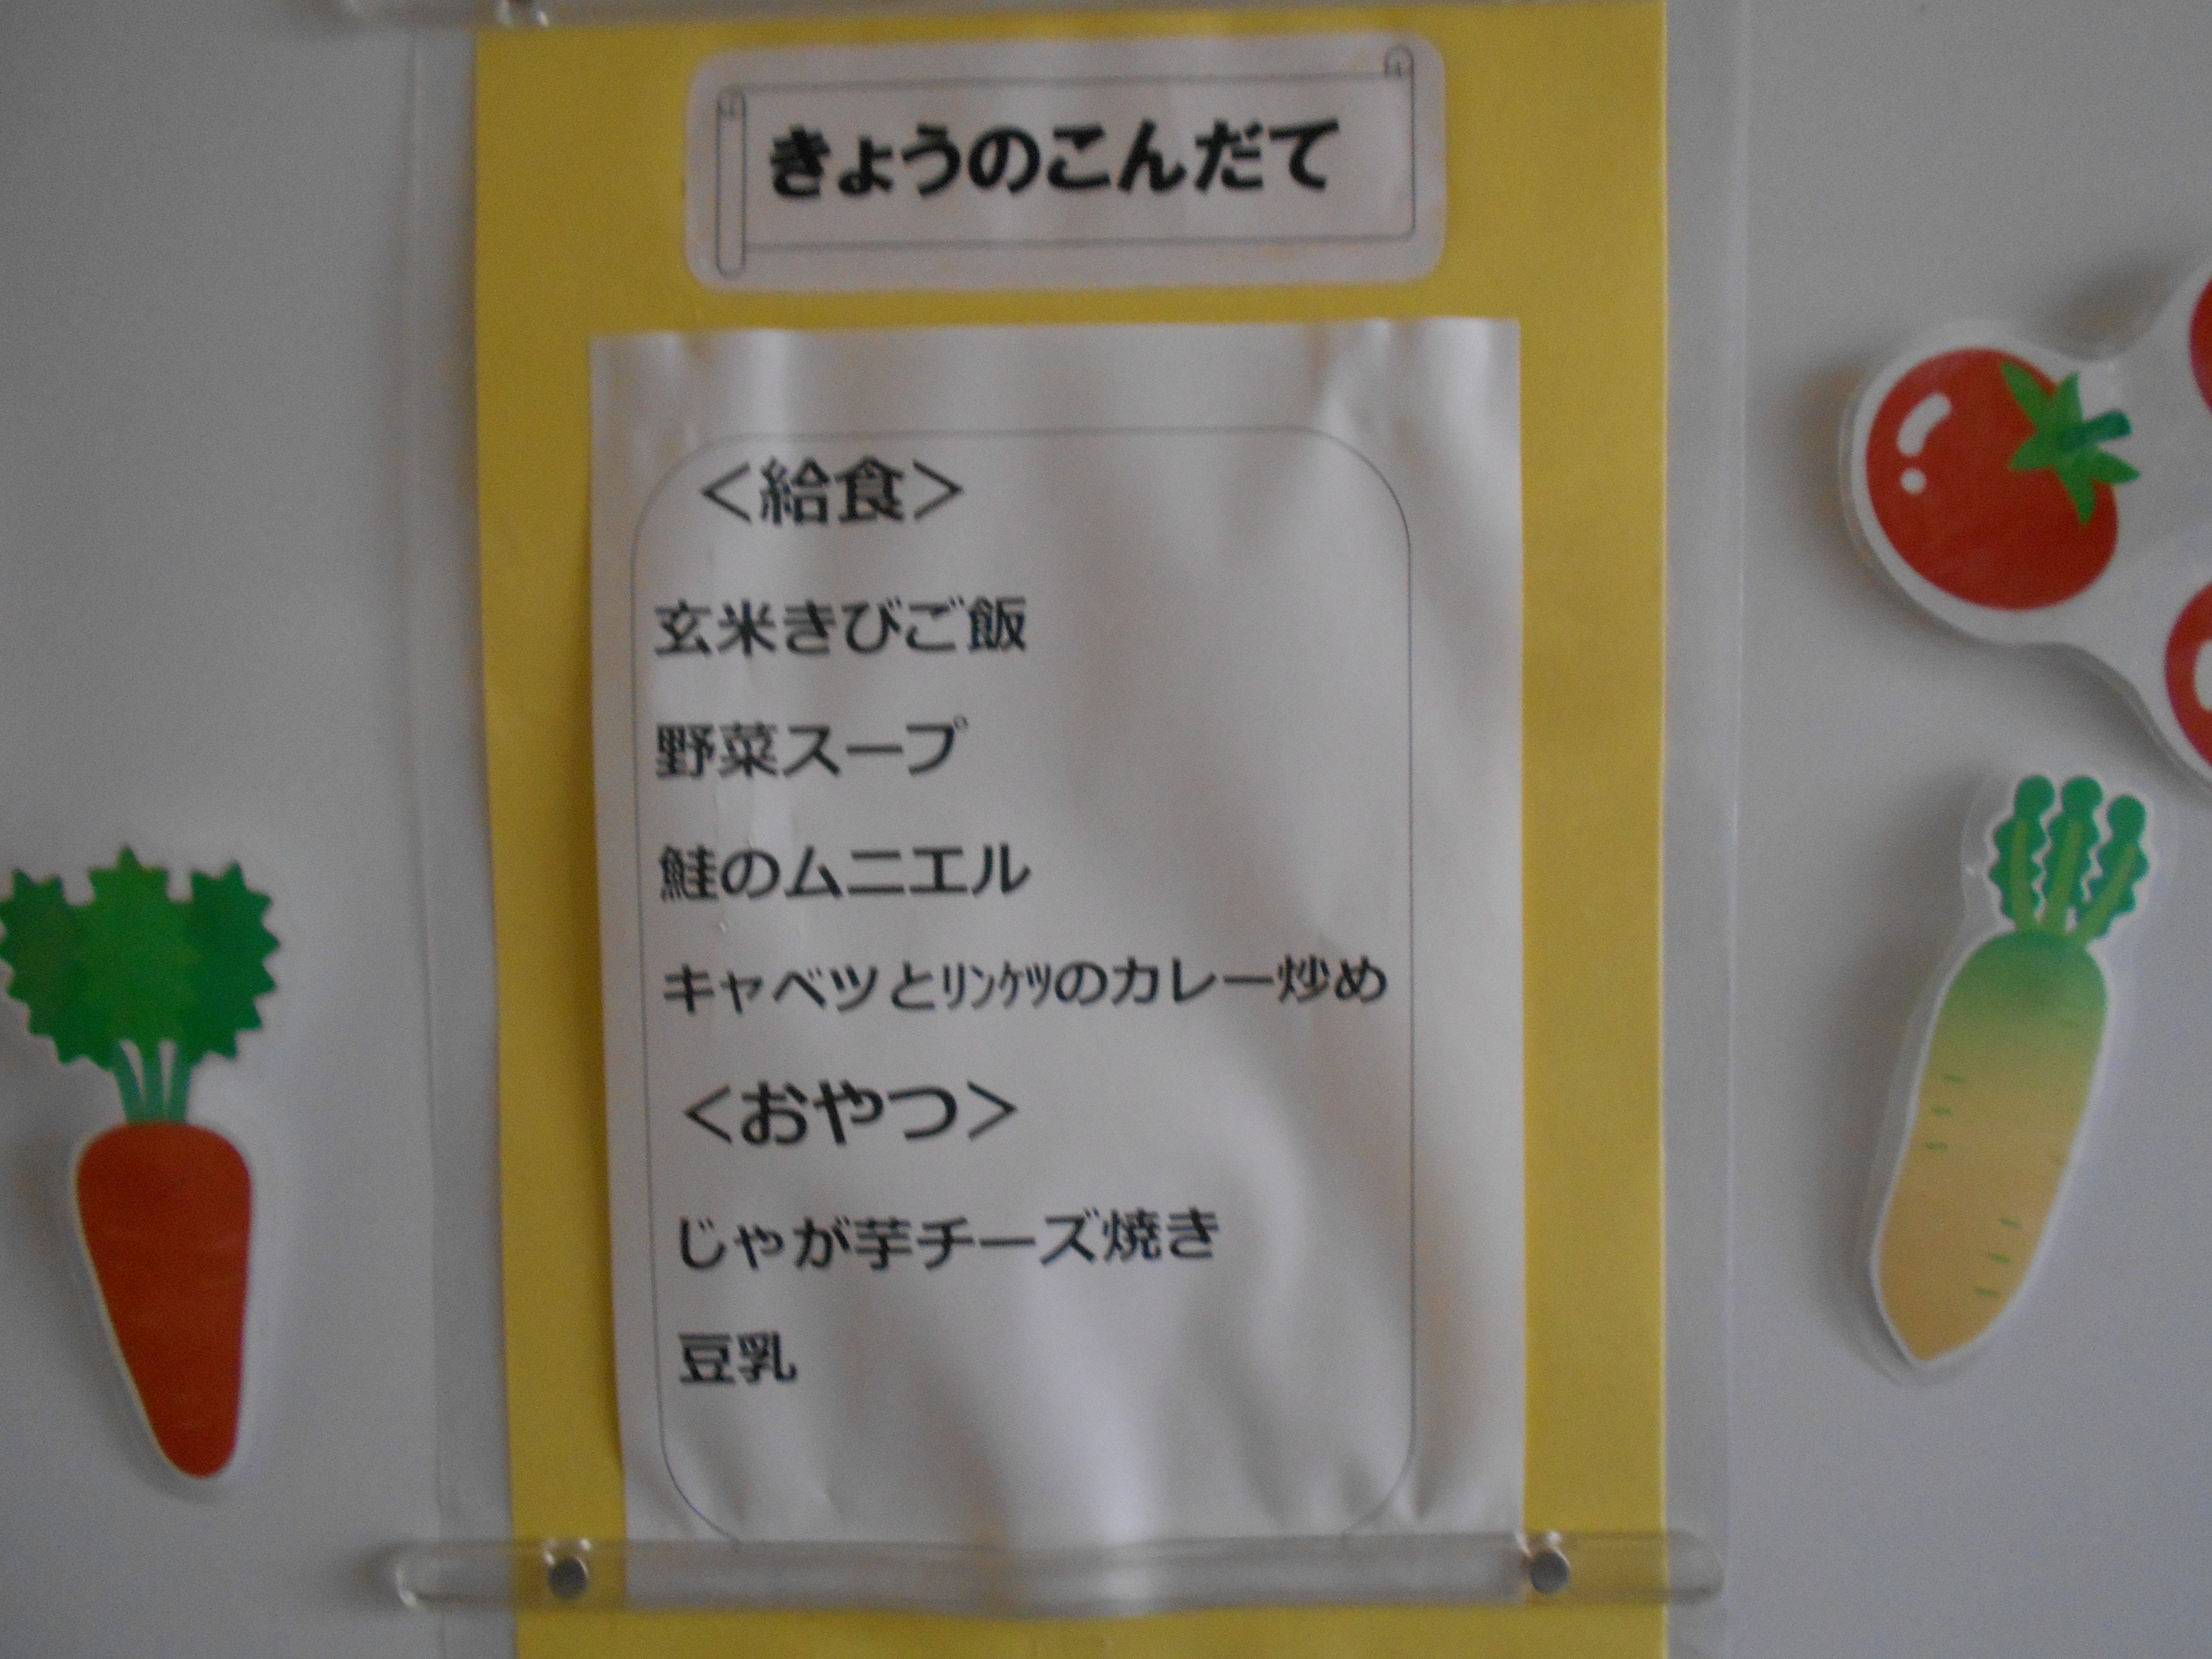 きょうのこんだて
＜給食＞
玄米きびご飯
野菜スープ
鮭のムニエル
キャベツとﾘﾝｹﾂのカレー炒め
＜おやつ＞
じゃが芋チーズ焼き
豆乳